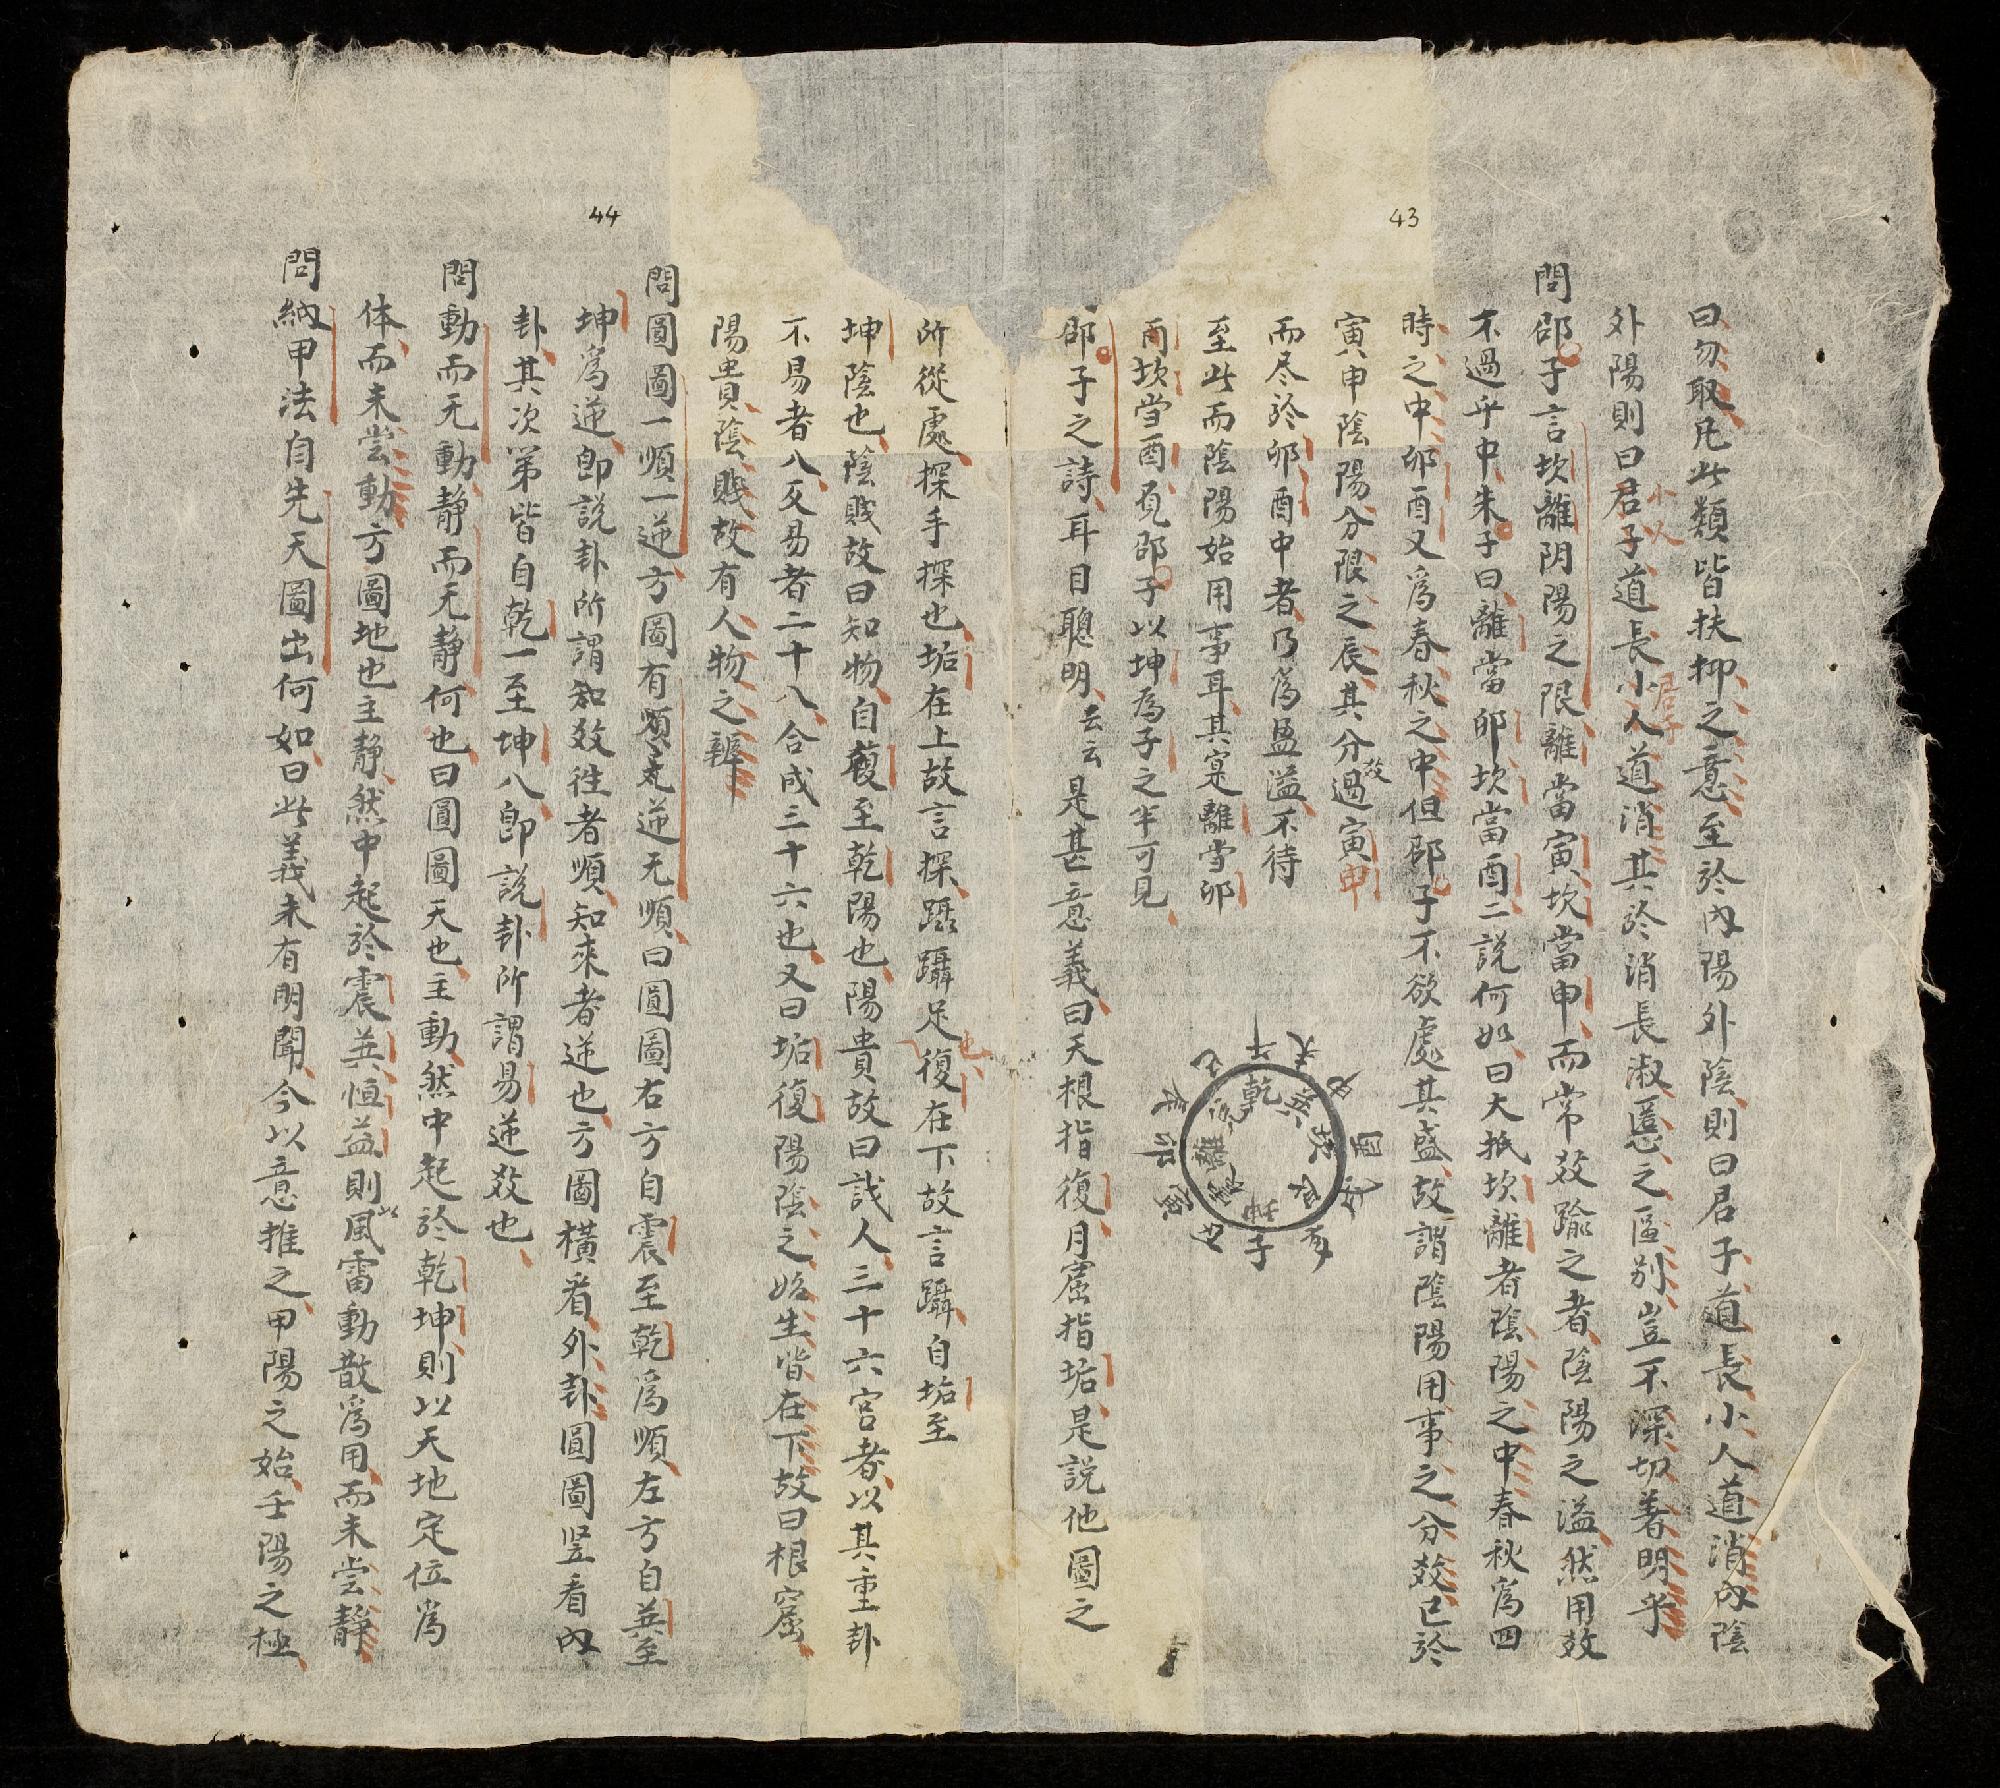 43
曰勿取凡此類皆扶抑之意至於內陽外陰則曰君子道長小人道消內陰
外陽則曰君子道長小人道消其於消長淑慝之區別豈不深切著明乎
小人
君子
問邵子言坎離阴陽之限離當寅坎當申而常敉踰之者陰陽之溢然用敉
不過乎中朱子曰離當卯坎當酉二説何如曰大抵坎離者陰陽之中春秋爲四
時之中卯酉又爲春秋之中但邵子不欲處其盛故謂陰陽用事之分敉已於
寅申陰陽分限之辰其分過寅申
敉
而尽於卯酉中者乃爲盈溢不待
至此而陰陽始用事耳其寔離当卯
而坎当酉覔邵子以坤爲子之半可見
乾
坤
離
坎
子
午
卯
酉
邵子之詩耳目聰明云云是甚意義曰天根指復月窟指垢是説他圖之
所從處探手探也垢在上故言探蹑躡足復在下故言躡自垢至
也
坤陰也陰賎故曰知物自複至乾陽也陽貴故曰識人三十六宮者以其重卦
不易者八反易者二十八合成三十六也又曰垢復陽陰之始生皆在下故曰根窟
陽貴陰賎故有人物之辨
44
問圖圖一順一逆方圖有順无逆无順曰圓圖右方自震至乾爲順左方自巽至
坤爲逆卽説卦所謂知敉徃者順知來者逆也方圖橫看外卦圓圖竪看內
卦其次第皆自乾一至坤八卽説卦所謂易逆敉也
問動而无動静而无静何也曰圓圖天也主動然中起於乾坤則以天地定位爲
体而未尝動方圖地也主静然中起於震巽恒益則風雷動散爲用而未尝静
以
問納甲法自先天圖出何如曰此義未有明聞今以意推之甲陽之始壬陽之極